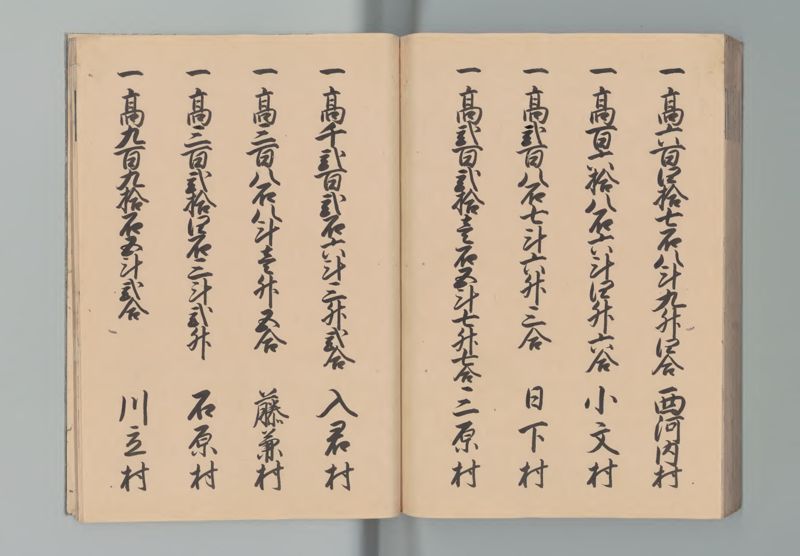 一高六百四拾七石八斗九升四合 西河内村
一高百六拾八石六斗四升六合 小文村
一高弐百八石七斗六升三合 日下村
一高弐百弐拾壱石五斗七升七合 三原村
一高千弐百弐石六斗三升弐合 入君村
一高三百八石八斗壱升五合 藤兼村
一高三百弐拾四石三斗弐升 石原村
一高九百九拾石五斗弐合 川立村